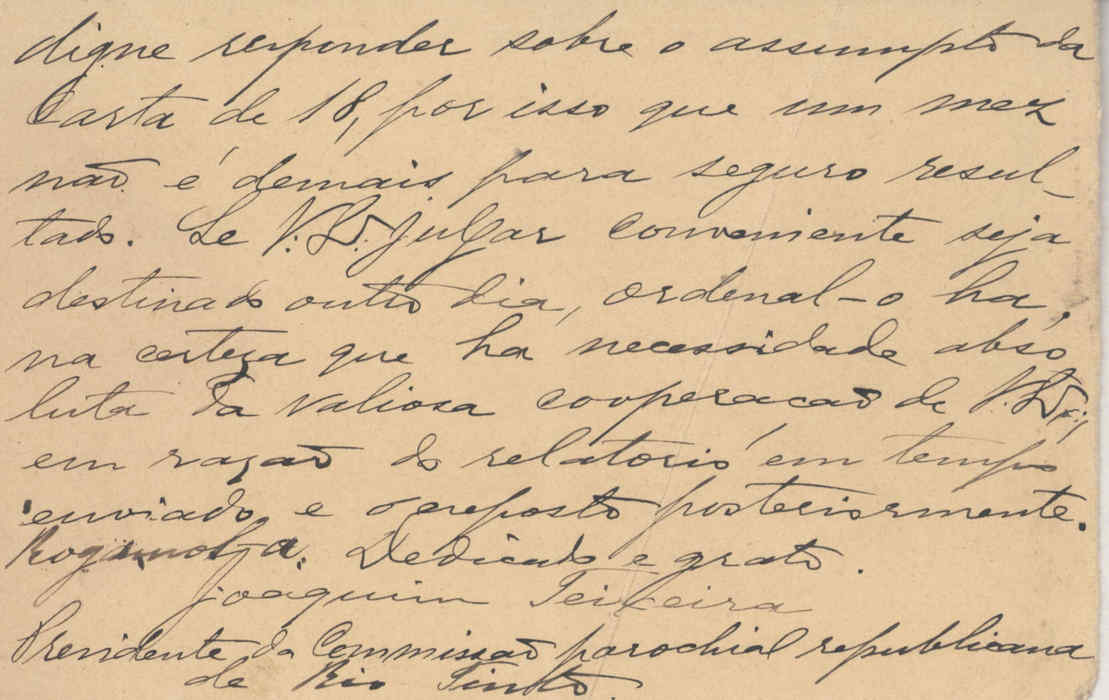 digne responder sobre o assumpto da
Carta de 18, por isso que um mez
não é demais para seguro resul-
tado. Se V. S. julgar conveniente seja
destinado outro dia, ordenal-o ha,
na certeza que ha necessidade abso
luta da valiosa cooperacão de V.
em razão do relatorio em tempo
enviado e o exposto posteriormente.
Dedicado e grato.
Joaquim Teixeira
Presidente da Commissão parochial republicana
de Rio Tinto.